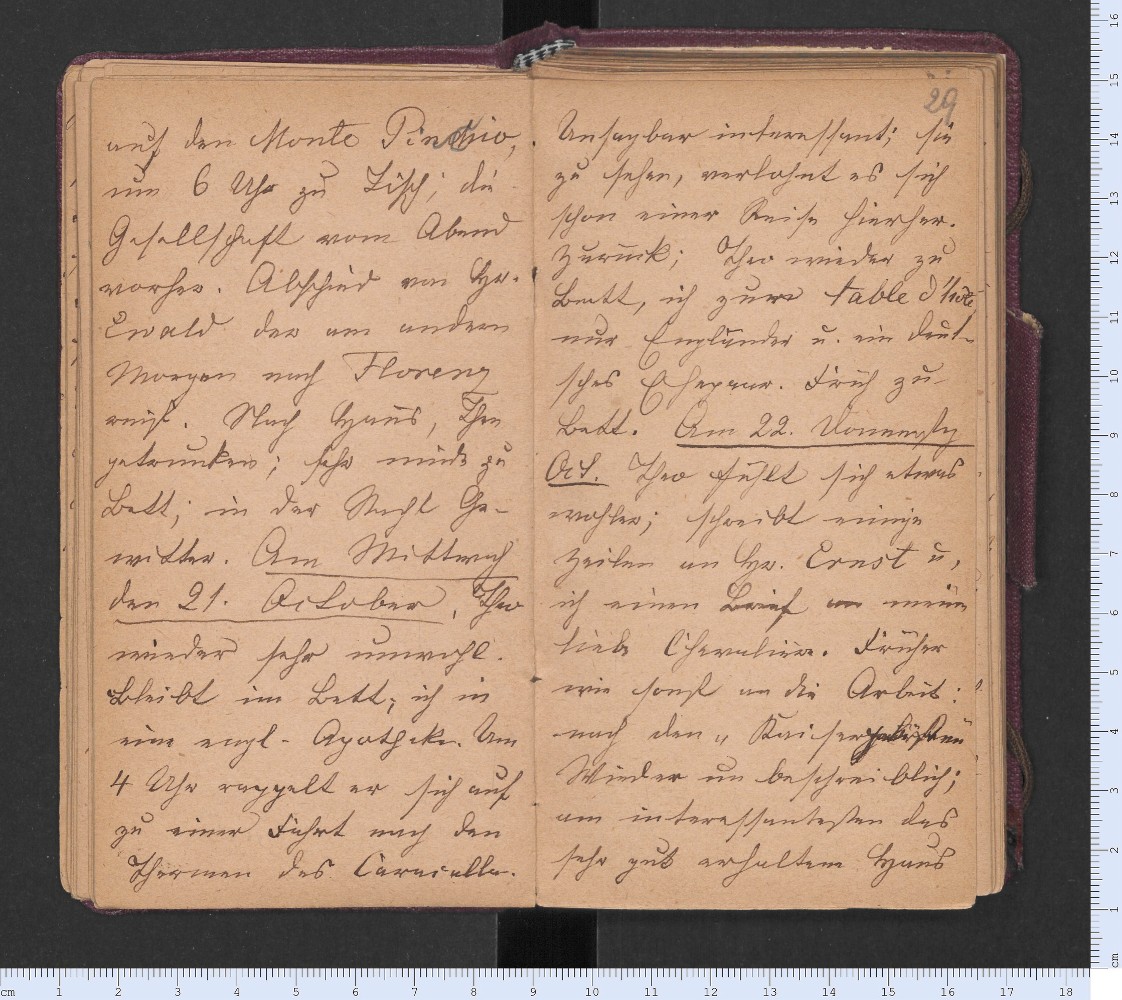 auf den Monte Pincio,
um 6 Uhr zu Tisch; die
Gesellschaft vom Abend
vorher. Abschied von Hr.
Ewald der am andern
Morgen nach Florenz
reist. Nach Haus, Thee
getrunken; sehr müde zu
Bett; in der Nacht Ge-
witter. Am Mittwoch
den 21. October, Theo
wieder sehr unwohl.
Bleibt im Bett; ich in
eine engl. Apotheke. Um
4 Uhr rappelt er sich auf
zu einer Fahrt nach den
Thermen des Caracalla.
29
Unsagbar interessant; sie
zu sehen, verlohnt es sich
schon einer Reise hierher.
Zurück; Theo wieder zu
Bett, ich zur table d'hôte
nur Engländer u. ein deut-
sches Ehepaar. Früh zu
Bett. Am 22. Donnerstg
Oct. Theo fühlt sich etwas
wohler; schreibt einige
Zeilen an Hr. Ernst u,
ich einen Brief an meine
liebe Chevalière. Früher
wie sonst an die Arbeit:
nach den „Kaiserpalästen
Wieder unbeschreiblich;
am interessantesten das
sehr gut erhaltene Haus